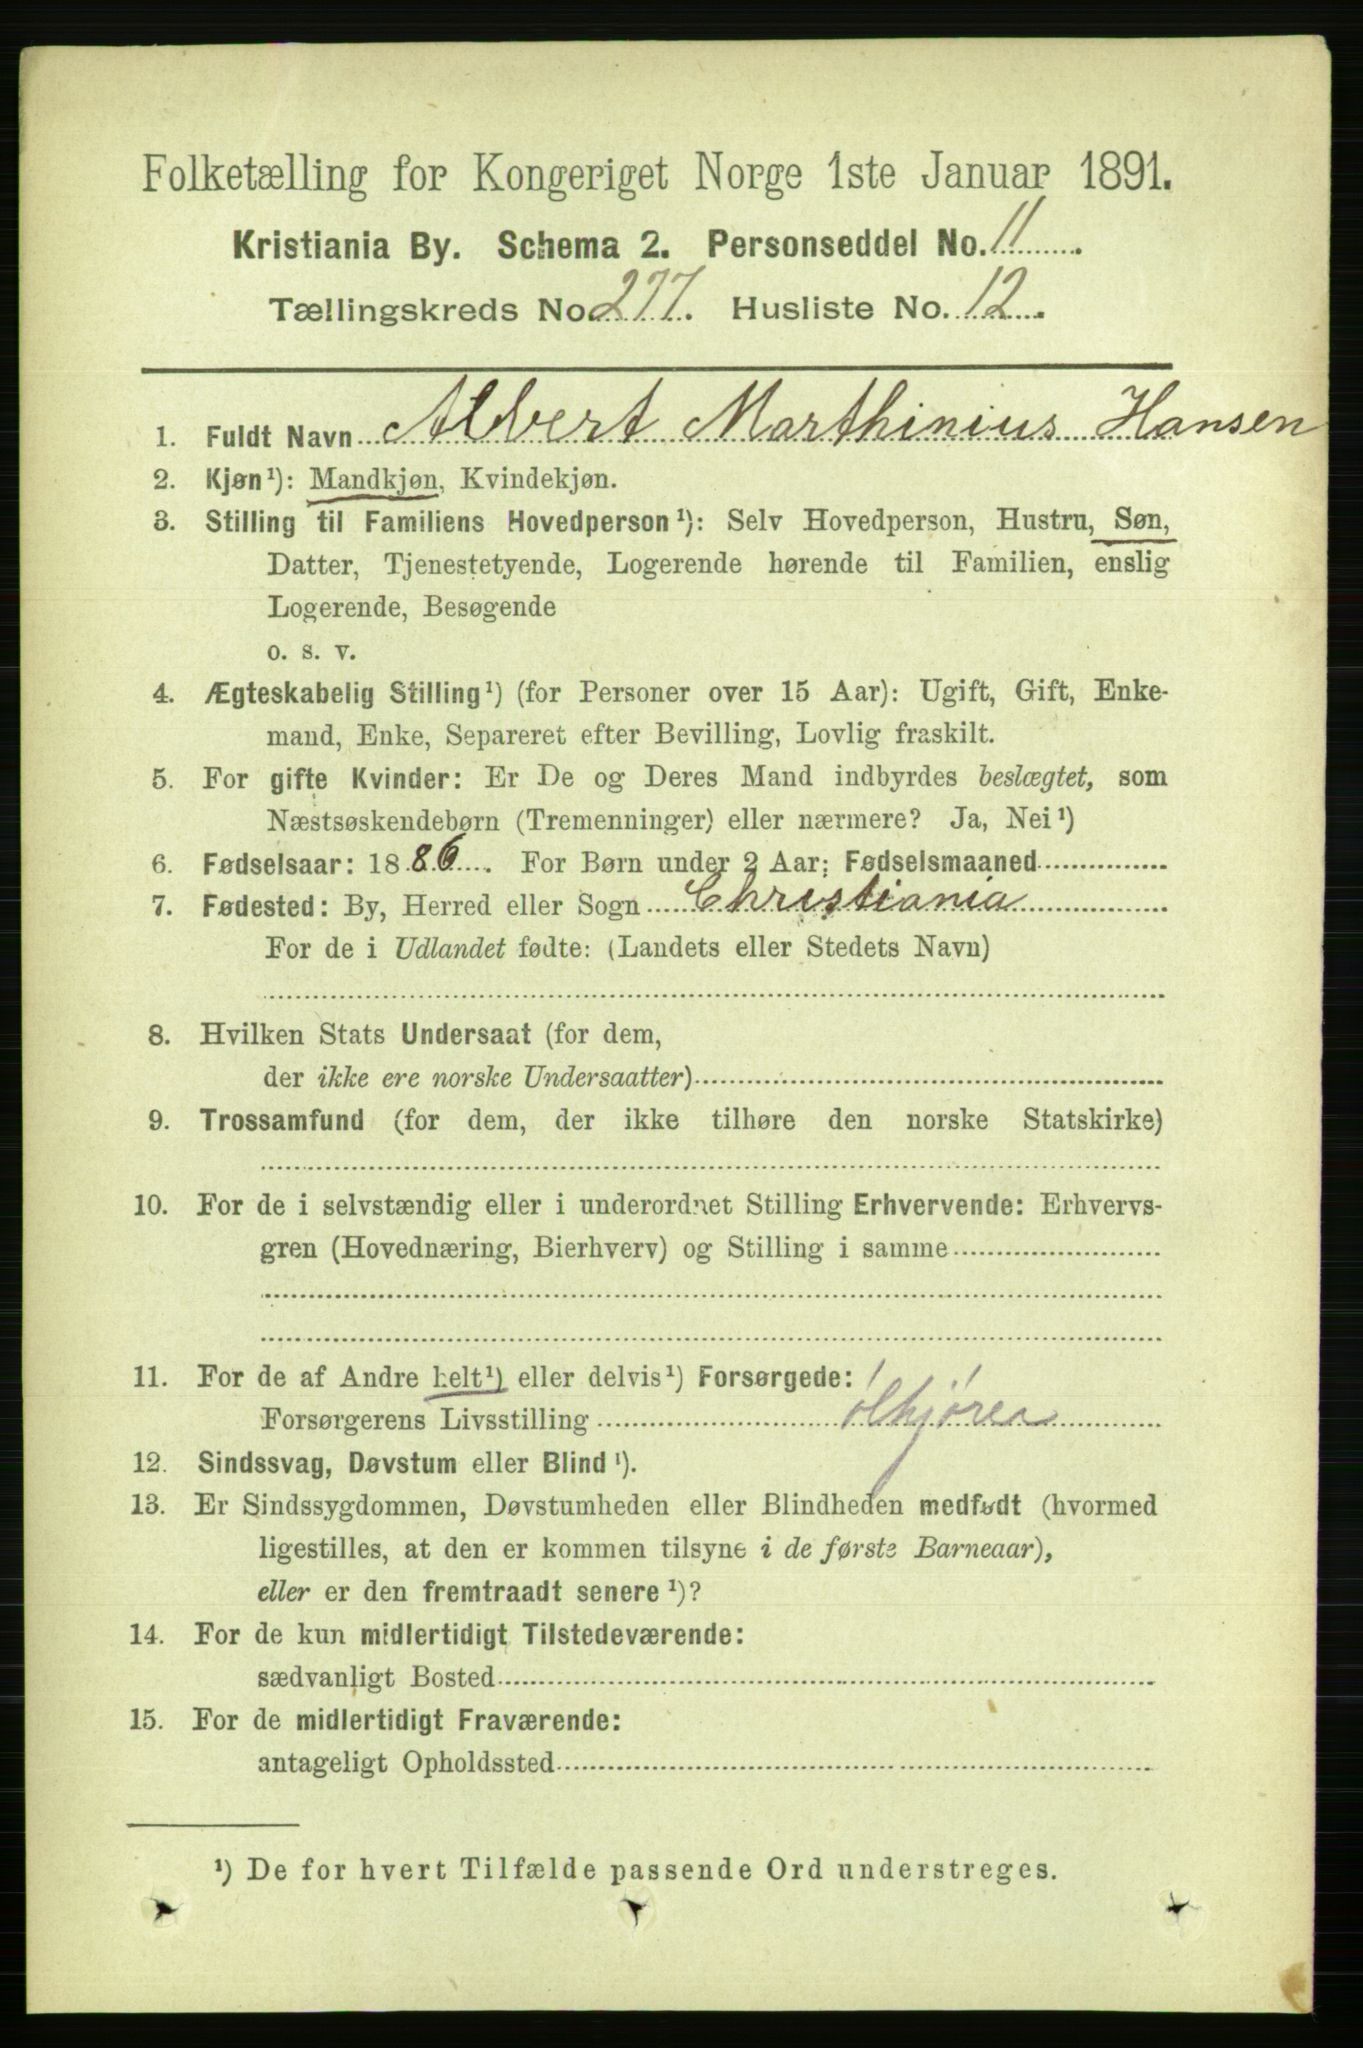 Folketælling for Kongeriget Norge 1ste Januar 1891.
Kristiania By. Schema 2. Personseddel No. 11
Tællingskreds No. 277. Husliste No. 12.
1. Fuldt Navn Albert Marthinius Hansen
2. Kjøn¹): Mandkjøn, Kvindekjøn.
3. Stilling til Familiens Hovedperson¹): Selv Hovedperson, Hustru, Søn,
Datter, Tjenestetyende, Logerende hørende til Familien, enslig
Logerende, Besøgende
o. s. v.
4. Ægteskabelig Stilling¹) (for Personer over 15 Aar): Ugift, Gift, Enke-
mand, Enke, Separeret efter Bevilling, Lovlig fraskilt.
5. For gifte Kvinder: Er De og Deres Mand indbyrdes beslægtet, som
Næstsøskendebørn (Tremenninger) eller nærmere? Ja, Nei¹)
6. Fødselsaar: 1886. For Børn under 2 Aar: Fødselsmaaned
7. Fødested: By, Herred eller Sogn Christiania
For de i Udlandet fødte: (Landets eller Stedets Navn)
8. Hvilken Stats Undersaat (for dem,
der ikke ere norske Undersaatter)
9. Trossamfund (for dem, der ikke tilhøre den norske Statskirke)
10. For de i selvstændig eller i underordnet Stilling Erhvervende: Erhvervs-
gren (Hovednæring, Bierhverv) og Stilling i samme
11. For de af Andre helt¹) eller delvis¹) Forsørgede:
Forsørgerens Livsstilling ølkjører
12. Sindssvag, Døvstum eller Blind¹).
13. Er Sindssygdommen, Døvstumheden eller Blindheden medfødt (hvormed
ligestilles, at den er kommen tilsyne i de første Barneaar),
eller er den fremtraadt senere¹)?
14. For de kun midlertidigt Tilstedeværende:
sædvanligt Bosted
15. For de midlertidigt Fraværende:
antageligt Opholdssted
¹) De for hvert Tilfælde passende Ord understreges.